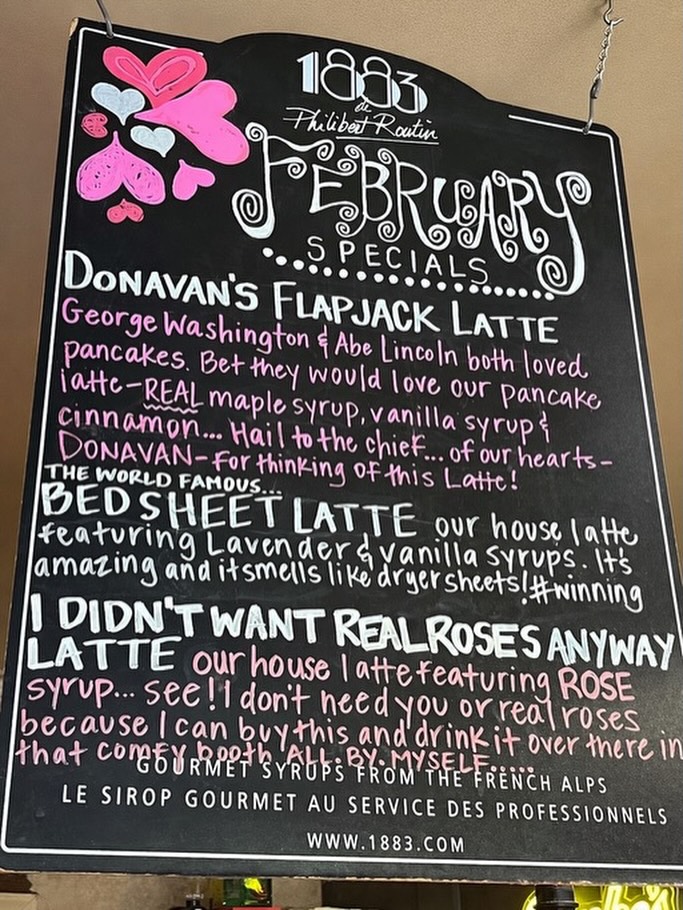 1883
de
Philibert Routin
FEBRUARY
SPECIALS
DONAVAN'S FLAPJACK LATTE
George Washington & Abe Lincoln both loved
pancakes. Bet they would love our pancake
latte-REAL maple syrup, vanilla syrup &
cinnamon... Hail to the chief... of our hearts-
DONAVAN-for thinking of this Latte!
THE WORLD FAMOUS...
BEDSHEET LATTE our house latte
featuring Lavender & vanilla syrups. It's
amazing and it smells like dryer sheets! #winning
I DIDN'T WANT REAL ROSES ANYWAY
LATTE our house latte featuring ROSE
syrup... see! I don't need you or real roses
because I can buy this and drink it over there in
that comfy booth ALL. BY. MYSELF.....
GOURMET SYRUPS FROM THE FRENCH ALPS
LE SIROP GOURMET AU SERVICE DES PROFESSIONNELS
WWW.1883.COM